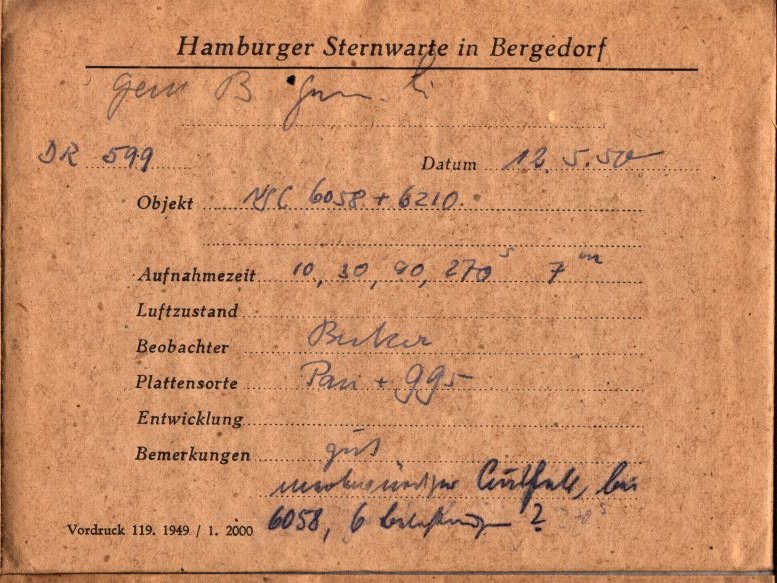 Hamburger Sternwarte in Bergedorf
gem B
DR 599 Datum 12.5.50
Objekt NGC 6058 + 6210
Aufnahmezeit 10, 30, 90, 270ˢ 7ᵐ
Luftzustand
Beobachter
Plattensorte Pan + 995
Entwicklung
Bemerkungen gut
bei
6058, 6 ?
Vordruck 119. 1949 / 1. 2000